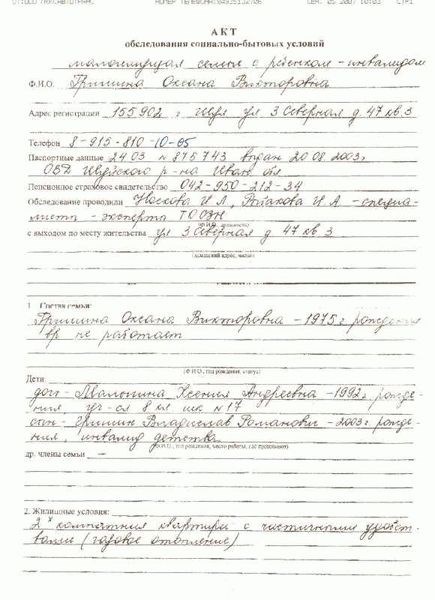 АКТ
обследования социально-бытовых условий
малоимущая семья с ребенком-инвалидом
Ф.И.О. Гришина Оксана Викторовна
Адрес регистрации 155902 г Шуя ул 3 Северная д 47 кв 3
Телефон 8-915-810-10-65
Паспортные данные 24 03 № 875743 выдан 20 08 2003г
ОВД Шуйского р-на Иван обл
Пенсионное страховое свидетельство 042-950-212-34
Обследование проводили Носкова И Л, И А - специа-
листы - эксперты ТОСЗН
с выходом по месту жительства ул 3 Северная д 47 кв 3
1. Состав семьи:
Гришина Оксана Викторовна - 1975 г рождения
вр не работает
(Ф.И.О., год рождения, статус)
Дети:
дочь - Ксения Андреевна - 1992г. рожде-
ния, уч-ся 8 кл шк №17
сын - Гришин Владислав Романович - 2003г рожде-
ния, инвалид детства
др. члены семьи
2. Жилищные условия:
2х комнатная квартира с частичными удобст-
вами (газовое отопление)